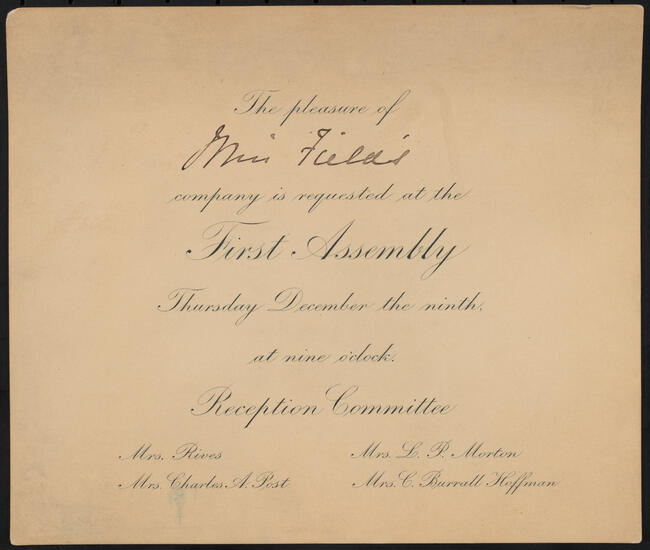 The pleasure of
Miss Field's
company is requested at the
First Assembly
Thursday December the ninth,
at nine o'clock.
Reception Committee
Mrs. Rives
Mrs. L. P. Morton
Mrs. Charles A. Post
Mrs. C. Burrall Hoffman